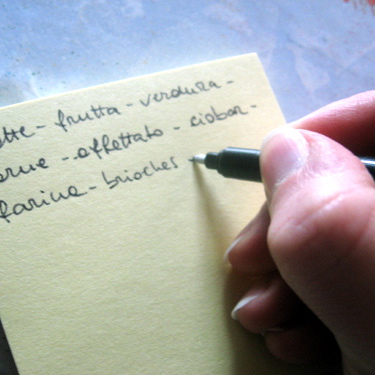 tte - frutta - verdura -
arne - affettato - ciobar -
farina - brioches